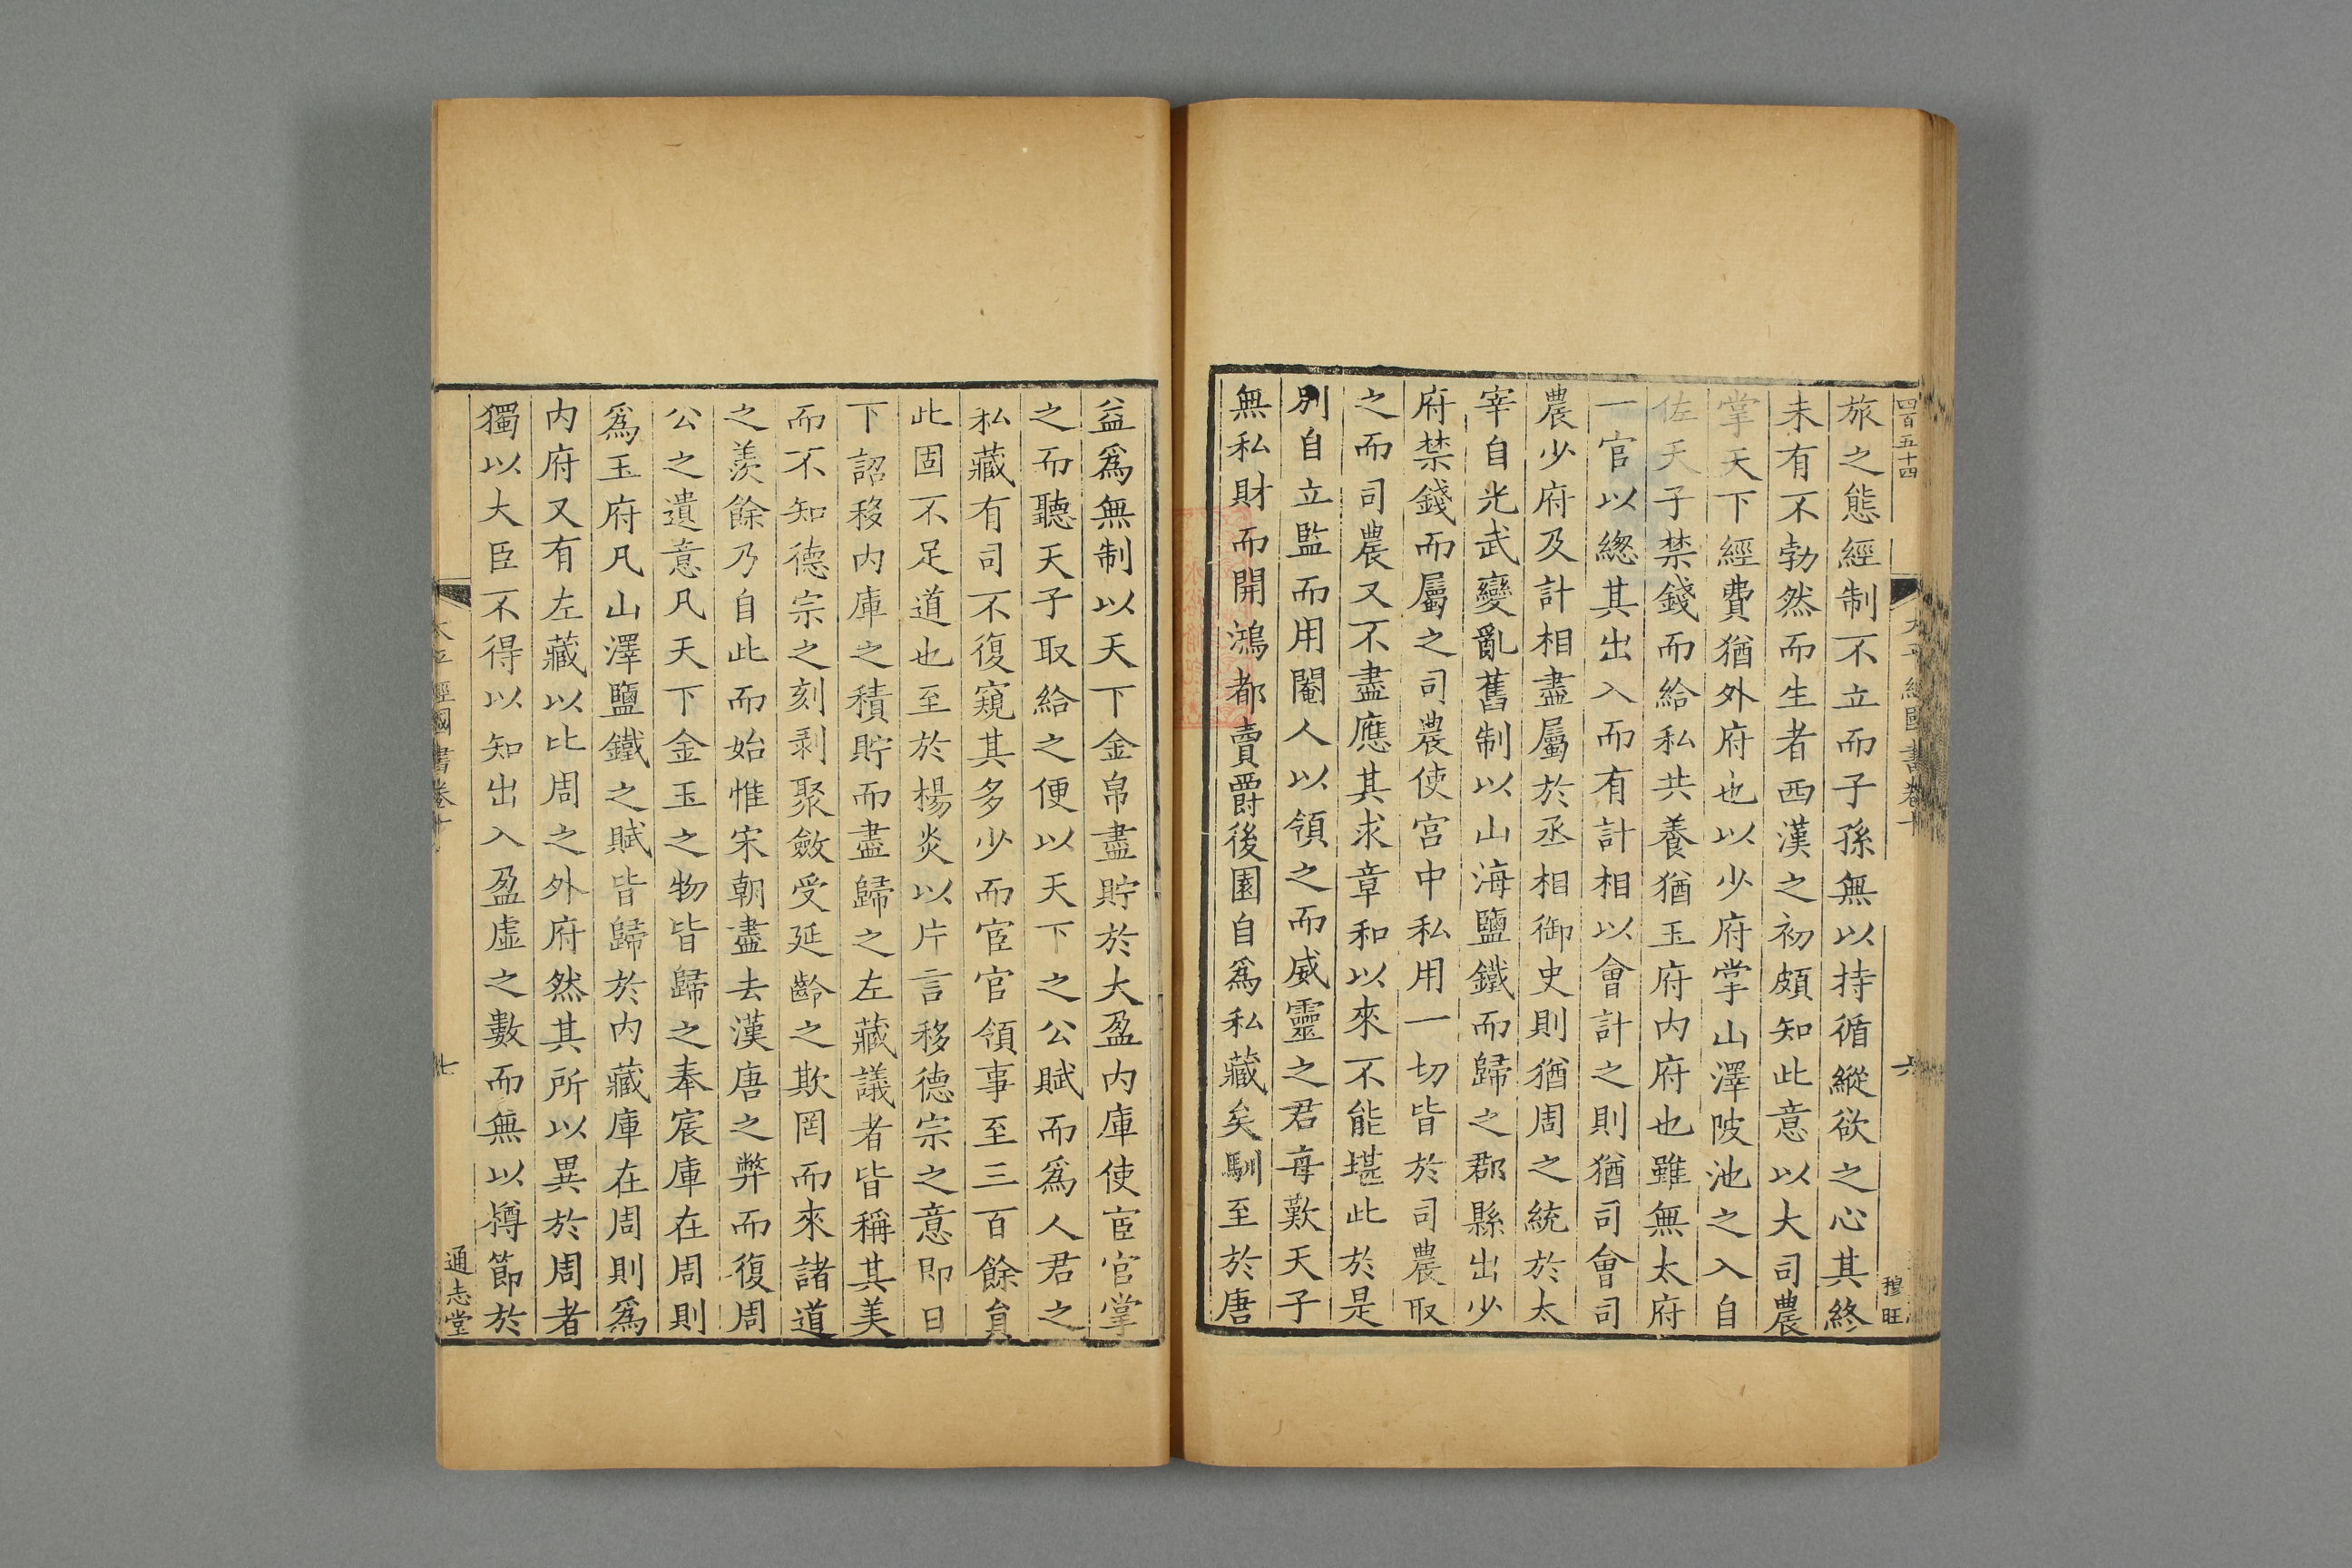 四百五十四
經國書卷十
六
穆旺
旅之態經制不立而子孫無以持循縱欲之心其終
未有不勃然而生者西漢之初頗知此意以大司農
掌天下經費猶外府也以少府掌山澤陂池之入自
佐天子禁錢而給私共養猶玉府内府也雖無太府
一官以緫其出入而有計相以會計之則猶司會司
農少府及計相盡屬於丞相御史則猶周之統於太
宰自光武變亂舊制以山海鹽鐵而歸之郡縣出少
府禁錢而屬之司農使宫中私用一切皆於司農取
之而司農又不盡應其求章和以來不能堪此於是
別自立監而用閹人以領之而威靈之君每歎天子
無私財而開鴻都賣爵後園自爲私藏矣馴至於唐
益爲無制以天下金帛盡貯於大盈内庫使宦官掌
之而聽天子取給之便以天下之公賦而爲人君之
私藏有司不復窺其多少而宦官領事至三百餘貟
此固不足道也至於楊炎以片言移德宗之意即日
下詔移内庫之積貯而盡歸之左藏議者皆稱其美
而不知德宗之刻剥聚斂受延齡之欺罔而來諸道
之羨餘乃自此而始惟宋朝盡去漢唐之弊而復周
公之遺意凡天下金玉之物皆歸之奉宸庫在周則
爲玉府凡山澤鹽鐵之賦皆歸於内藏庫在周則爲
内府又有左藏以比周之外府然其所以異於周者
獨以大臣不得以知出入盈虛之數而無以撙節於
太平經國書卷十
七
通志堂